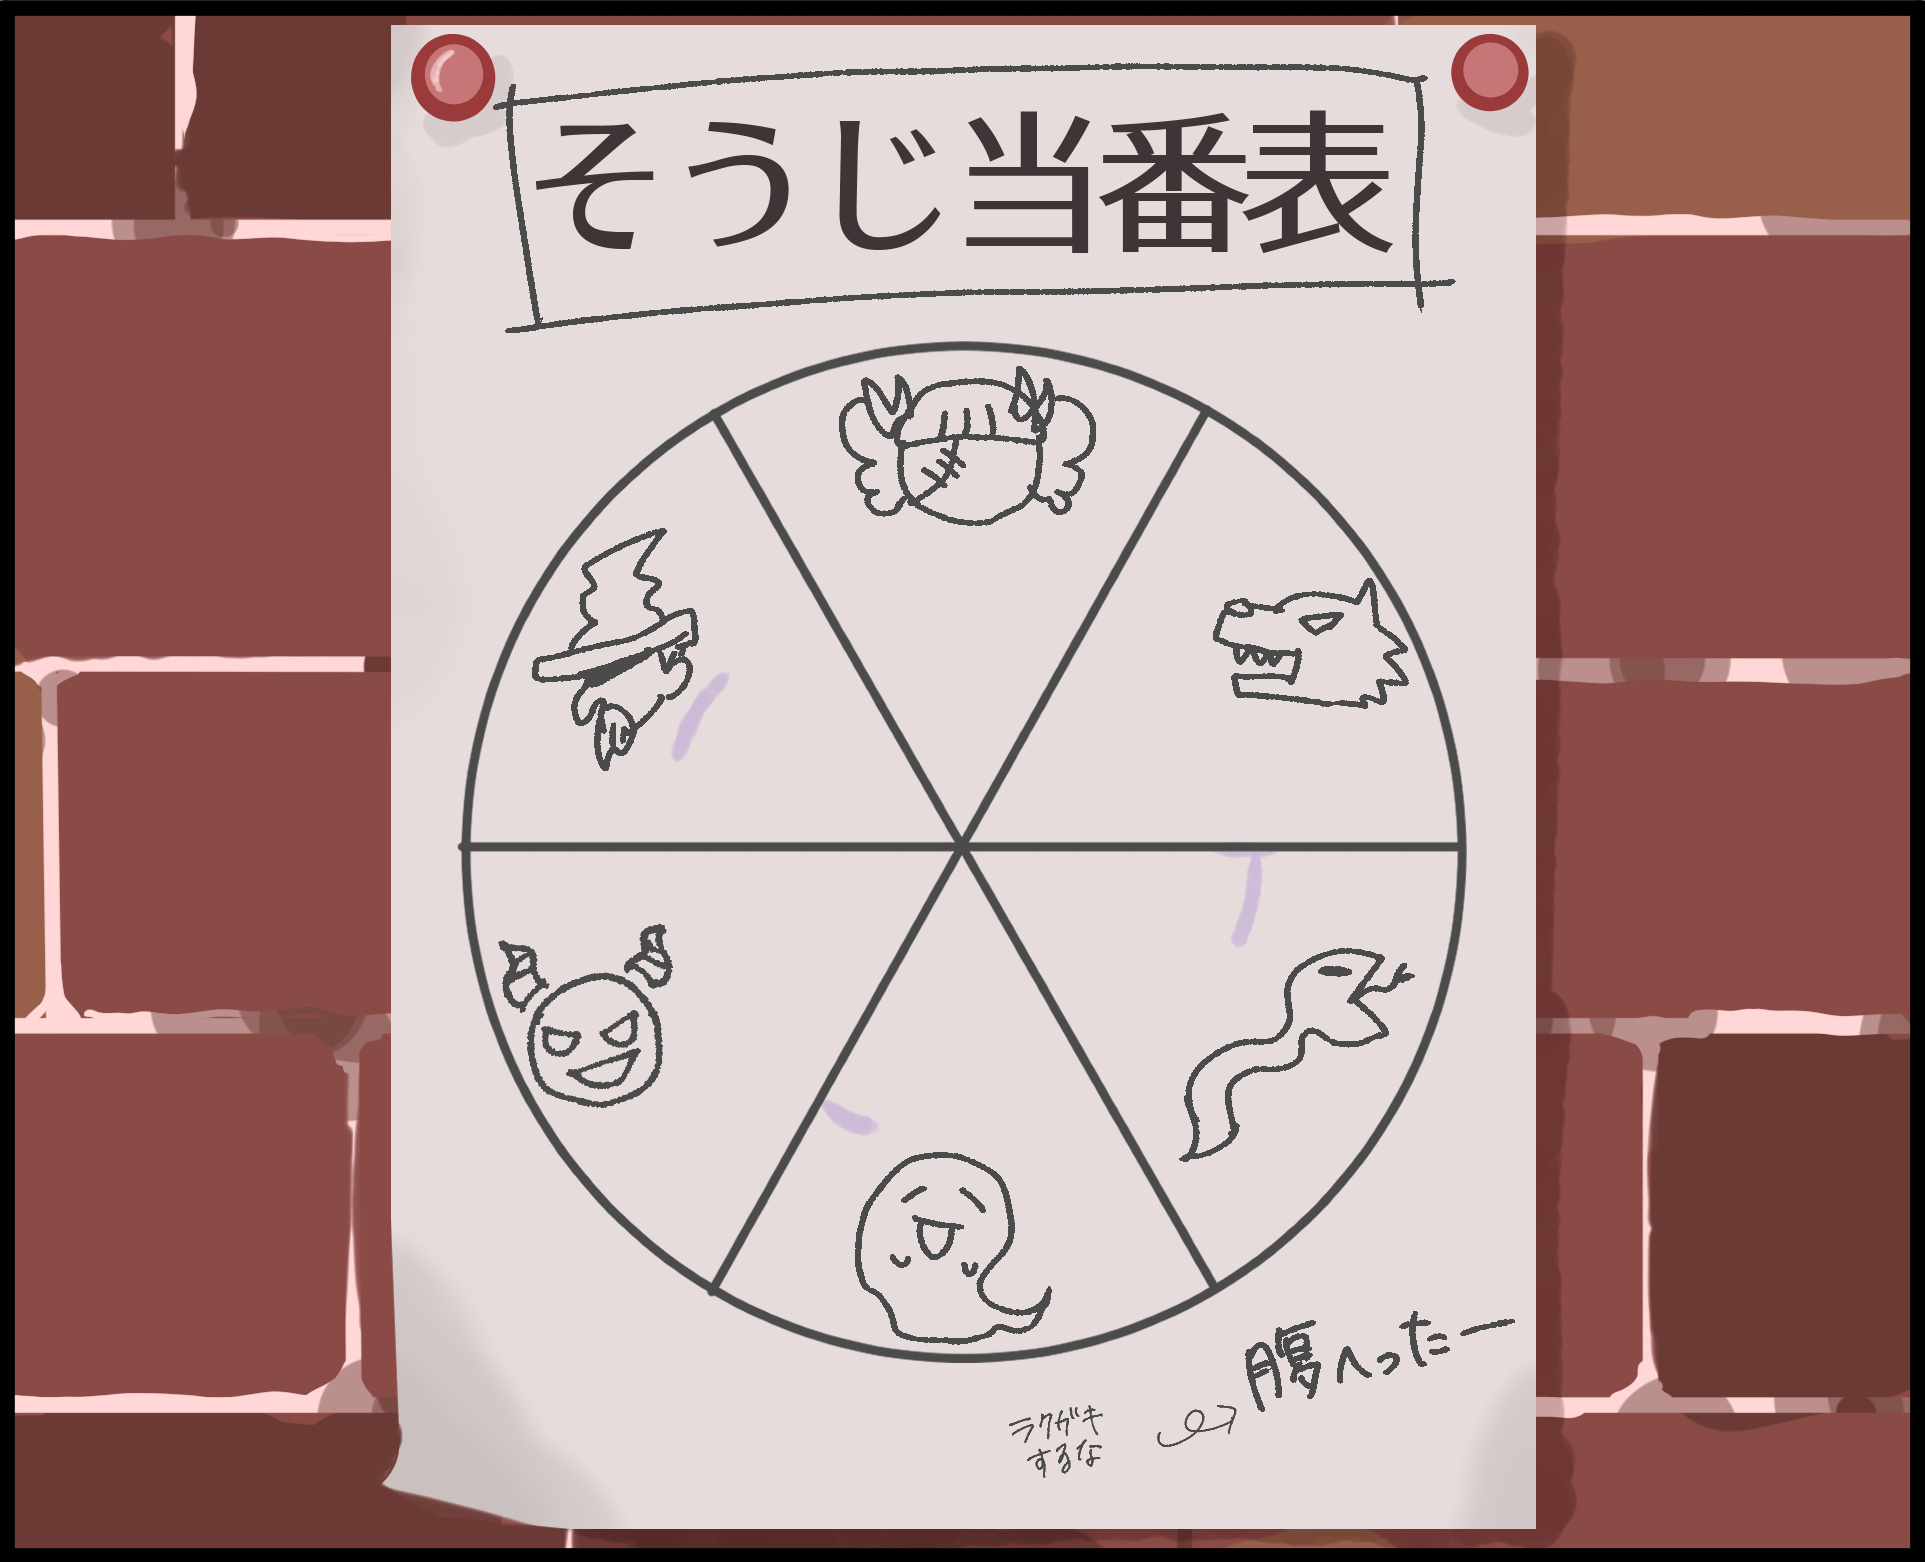 そうじ当番表
腹へったー
ラクガキ
するな